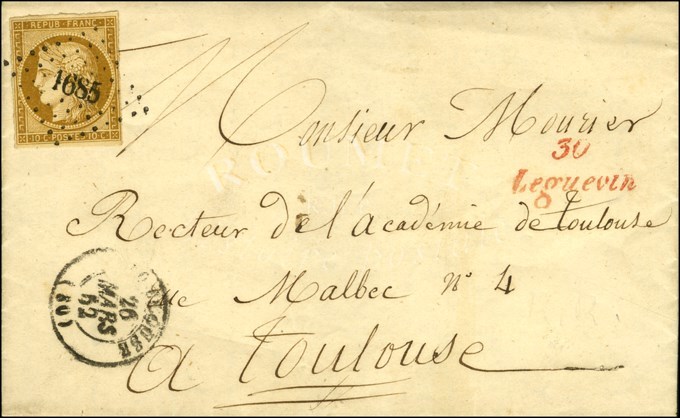 REPUB. FRANC.
1685
10 C. POSTES 10 C.
Monsieur Mourier
30
Leguevin
Recteur de l'académie de Toulouse
rue Malbec n° 4
26
MARS
52
(30)
à Toulouse
ROUMET